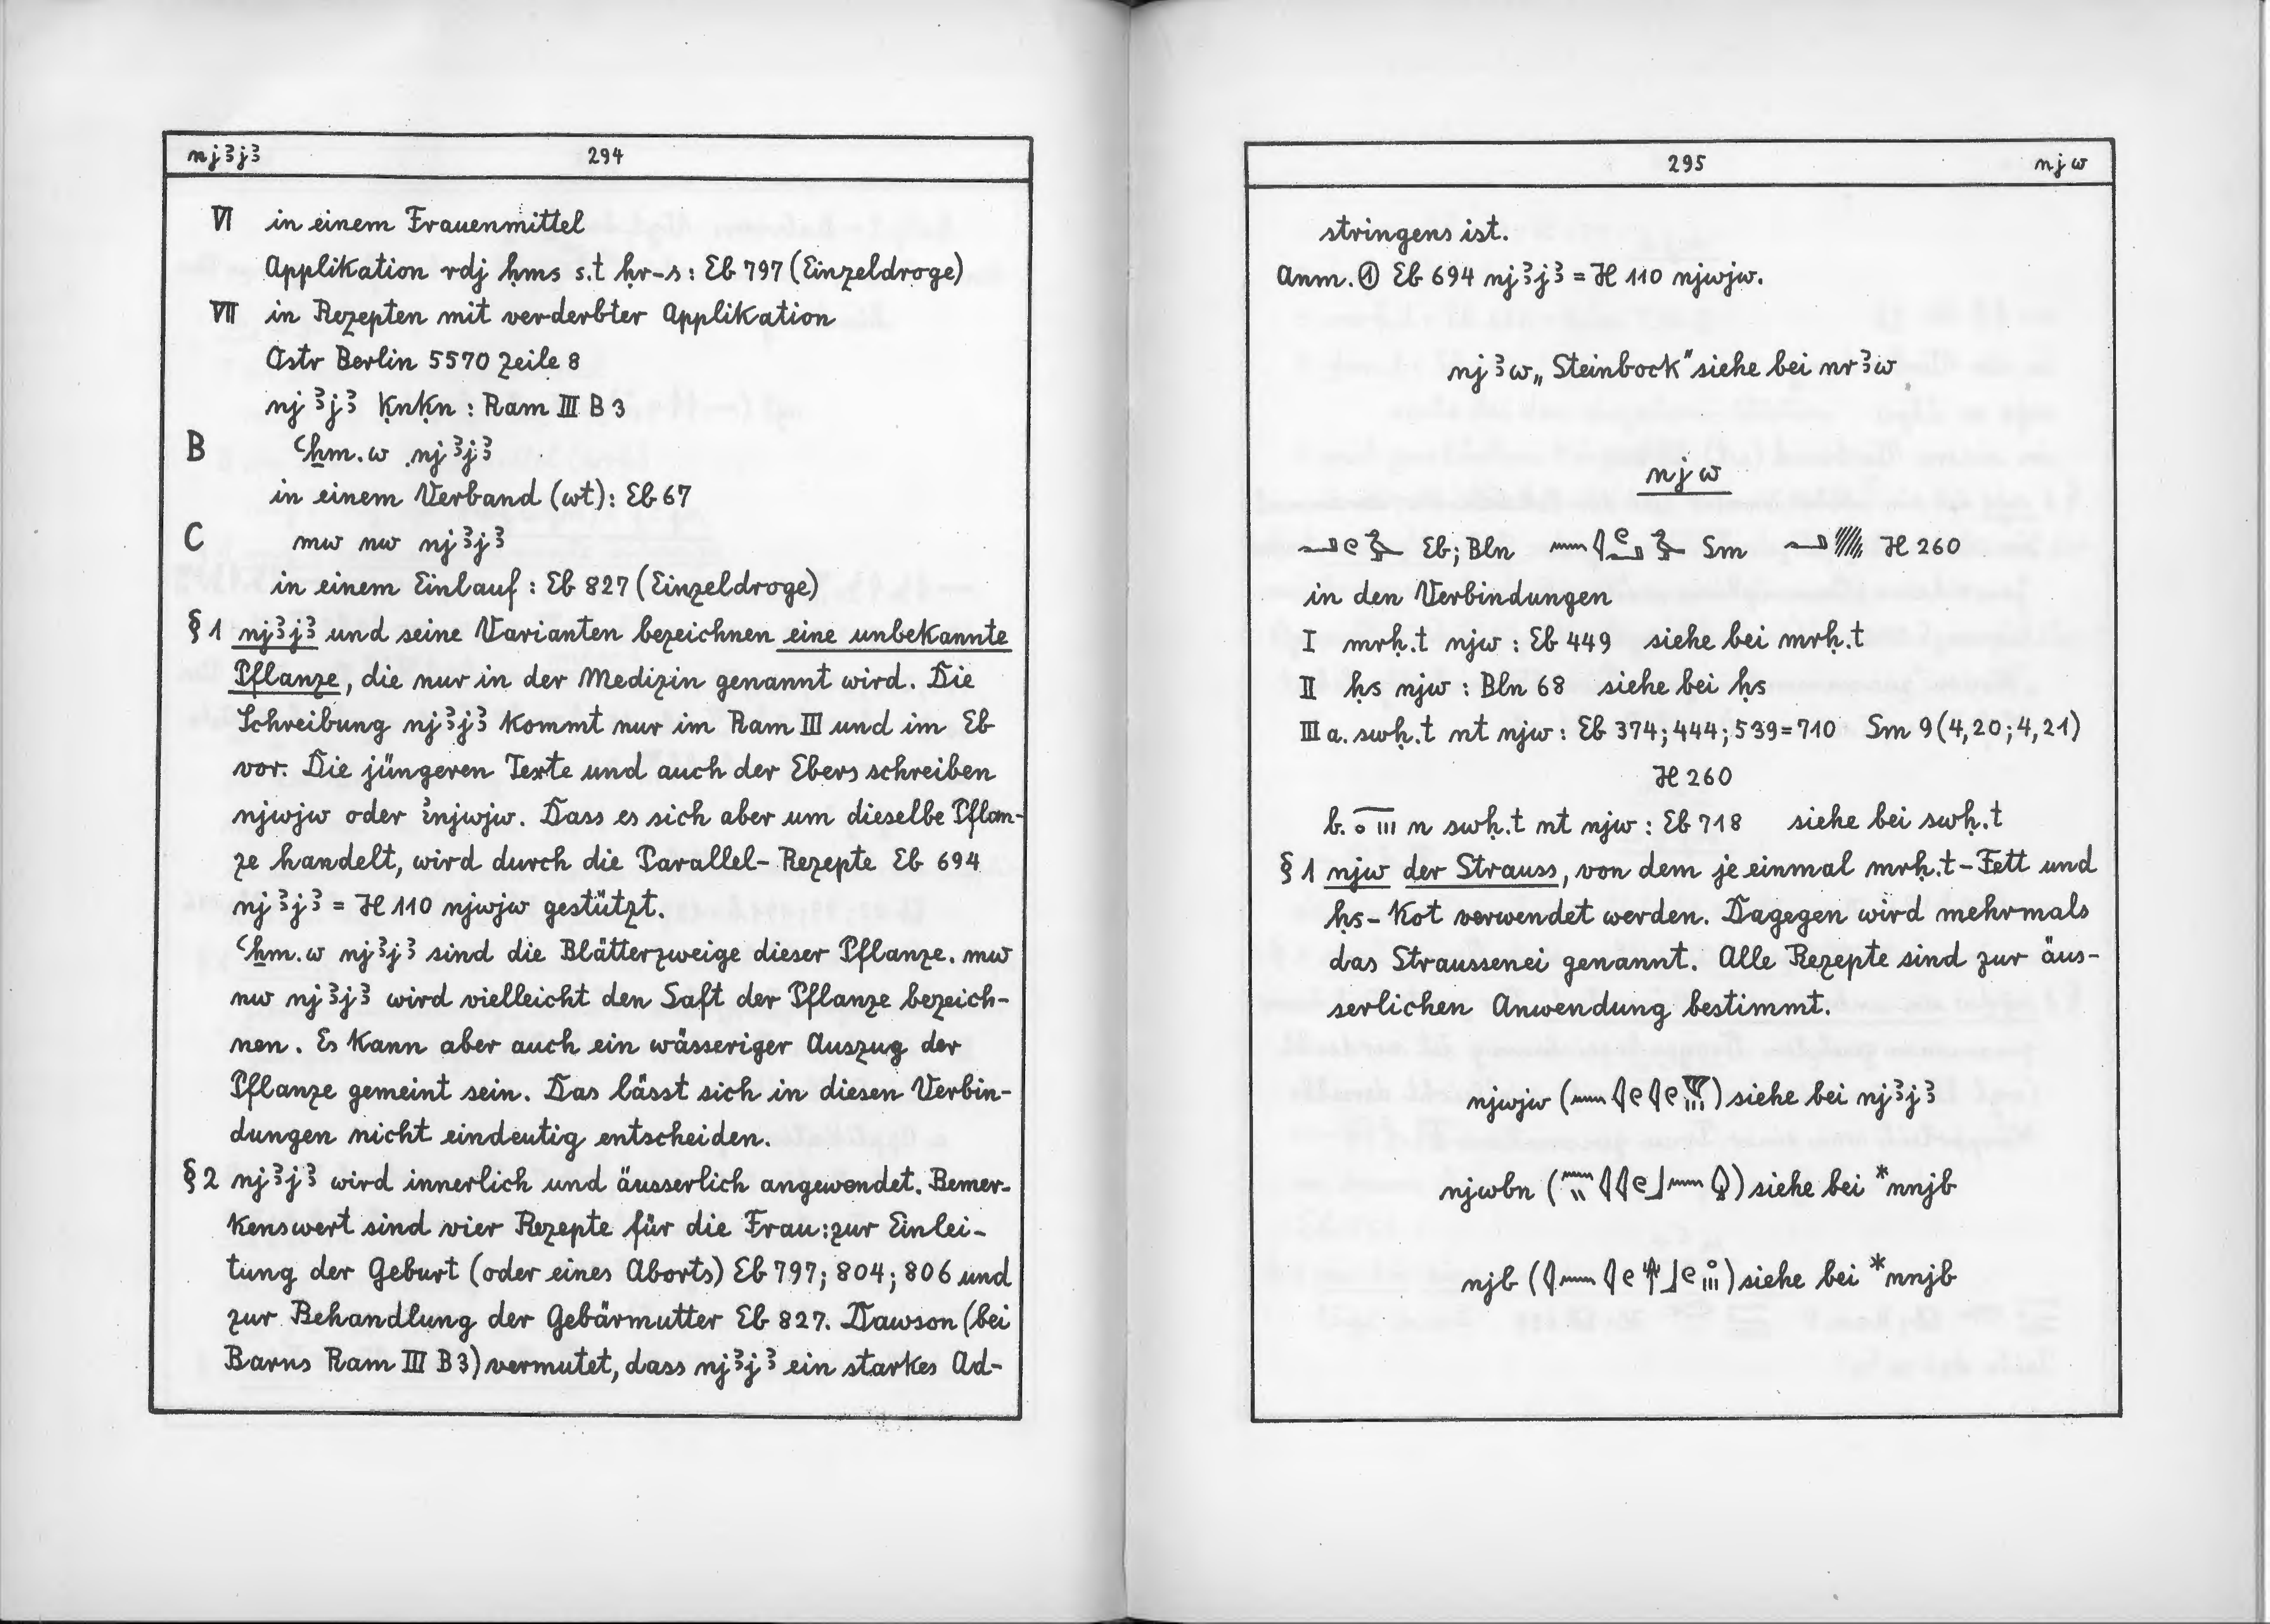 njꜣjꜣ 294
VI in einem Frauenmittel
Applikation rdj ḥms s.t ḥr-s: Eb 797 (Einzeldroge)
VII in Rezepten mit verderbter Applikation
Ostr Berlin 5570 Zeile 8
njꜣjꜣ ḳnḳn : Ram III B 3
B ꜥẖm.w njꜣjꜣ
in einem Verband (wt): Eb 67
C mw nw njꜣjꜣ
in einem Einlauf : Eb 827 (Einzeldroge)
§ 1 njꜣjꜣ und seine Varianten bezeichnen eine unbekannte
Pflanze, die nur in der Medizin genannt wird. Die
Schreibung njꜣjꜣ kommt nur im Ram III und im Eb
vor. Die jüngeren Texte und auch der Ebers schreiben
njwjw oder ꜣnjwjw. Dass es sich aber um dieselbe Pflan-
ze handelt, wird durch die Parallel-Rezepte Eb 694
njꜣjꜣ = H 110 njwjw gestützt.
ꜥẖm.w njꜣjꜣ sind die Blätterzweige dieser Pflanze. mw
nw njꜣjꜣ wird vielleicht den Saft der Pflanze bezeich-
nen. Es kann aber auch ein wässeriger Auszug der
Pflanze gemeint sein. Das lässt sich in diesen Verbin-
dungen nicht eindeutig entscheiden.
§ 2 njꜣjꜣ wird innerlich und äusserlich angewendet. Bemer-
kenswert sind vier Rezepte für die Frau: zur Einlei-
tung der Geburt (oder eines Aborts) Eb 797; 804; 806 und
zur Behandlung der Gebärmutter Eb 827. Dawson (bei
Barns Ram III B 3) vermutet, dass njꜣjꜣ ein starkes Ad-
295 njw
stringens ist.
Anm. ① Eb 694 njꜣjꜣ = H 110 njwjw.
njꜣw „Steinbock" siehe bei nrꜣw
njw
Eb; Bln Sm H 260
in den Verbindungen
I mrḥ.t njw : Eb 449 siehe bei mrḥ.t
II ḥs njw : Bln 68 siehe bei ḥs
III a. swḥ.t nt njw : Eb 374; 444; 539=710 Sm 9 (4,20; 4,21)
H 260
b. n swḥ.t nt njw : Eb 718 siehe bei swḥ.t
§ 1 njw der Strauss, von dem je einmal mrḥ.t-Fett und
ḥs-Kot verwendet werden. Dagegen wird mehrmals
das Straussenei genannt. Alle Rezepte sind zur äus-
serlichen Anwendung bestimmt.
njwjw ( ) siehe bei njꜣjꜣ
njwbn ( ) siehe bei *nnjb
njb ( ) siehe bei *nnjb